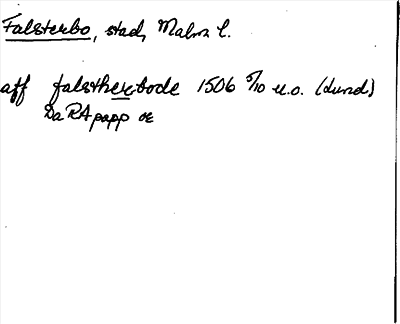 Falsterbo, stad, Malm. l.
aff falstherbode 1506 5/10 u.o. (Lund)
Da RA papp oe